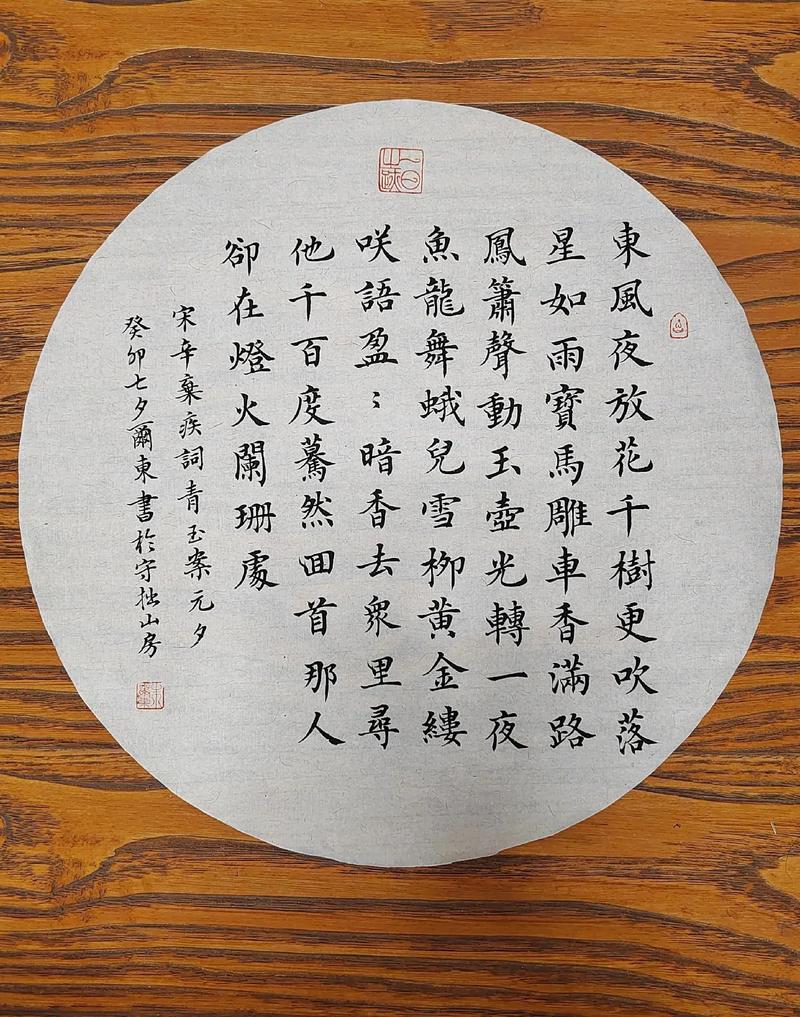 東風夜放花千樹更吹落
星如雨寶馬雕車香滿路
鳳簫聲動玉壺光轉一夜
魚龍舞蛾兒雪柳黃金縷
咲語盈〻暗香去衆里尋
他千百度驀然回首那人
卻在燈火闌珊處
宋辛棄疾詞青玉案元夕
癸卯七夕爾東書於守拙山房